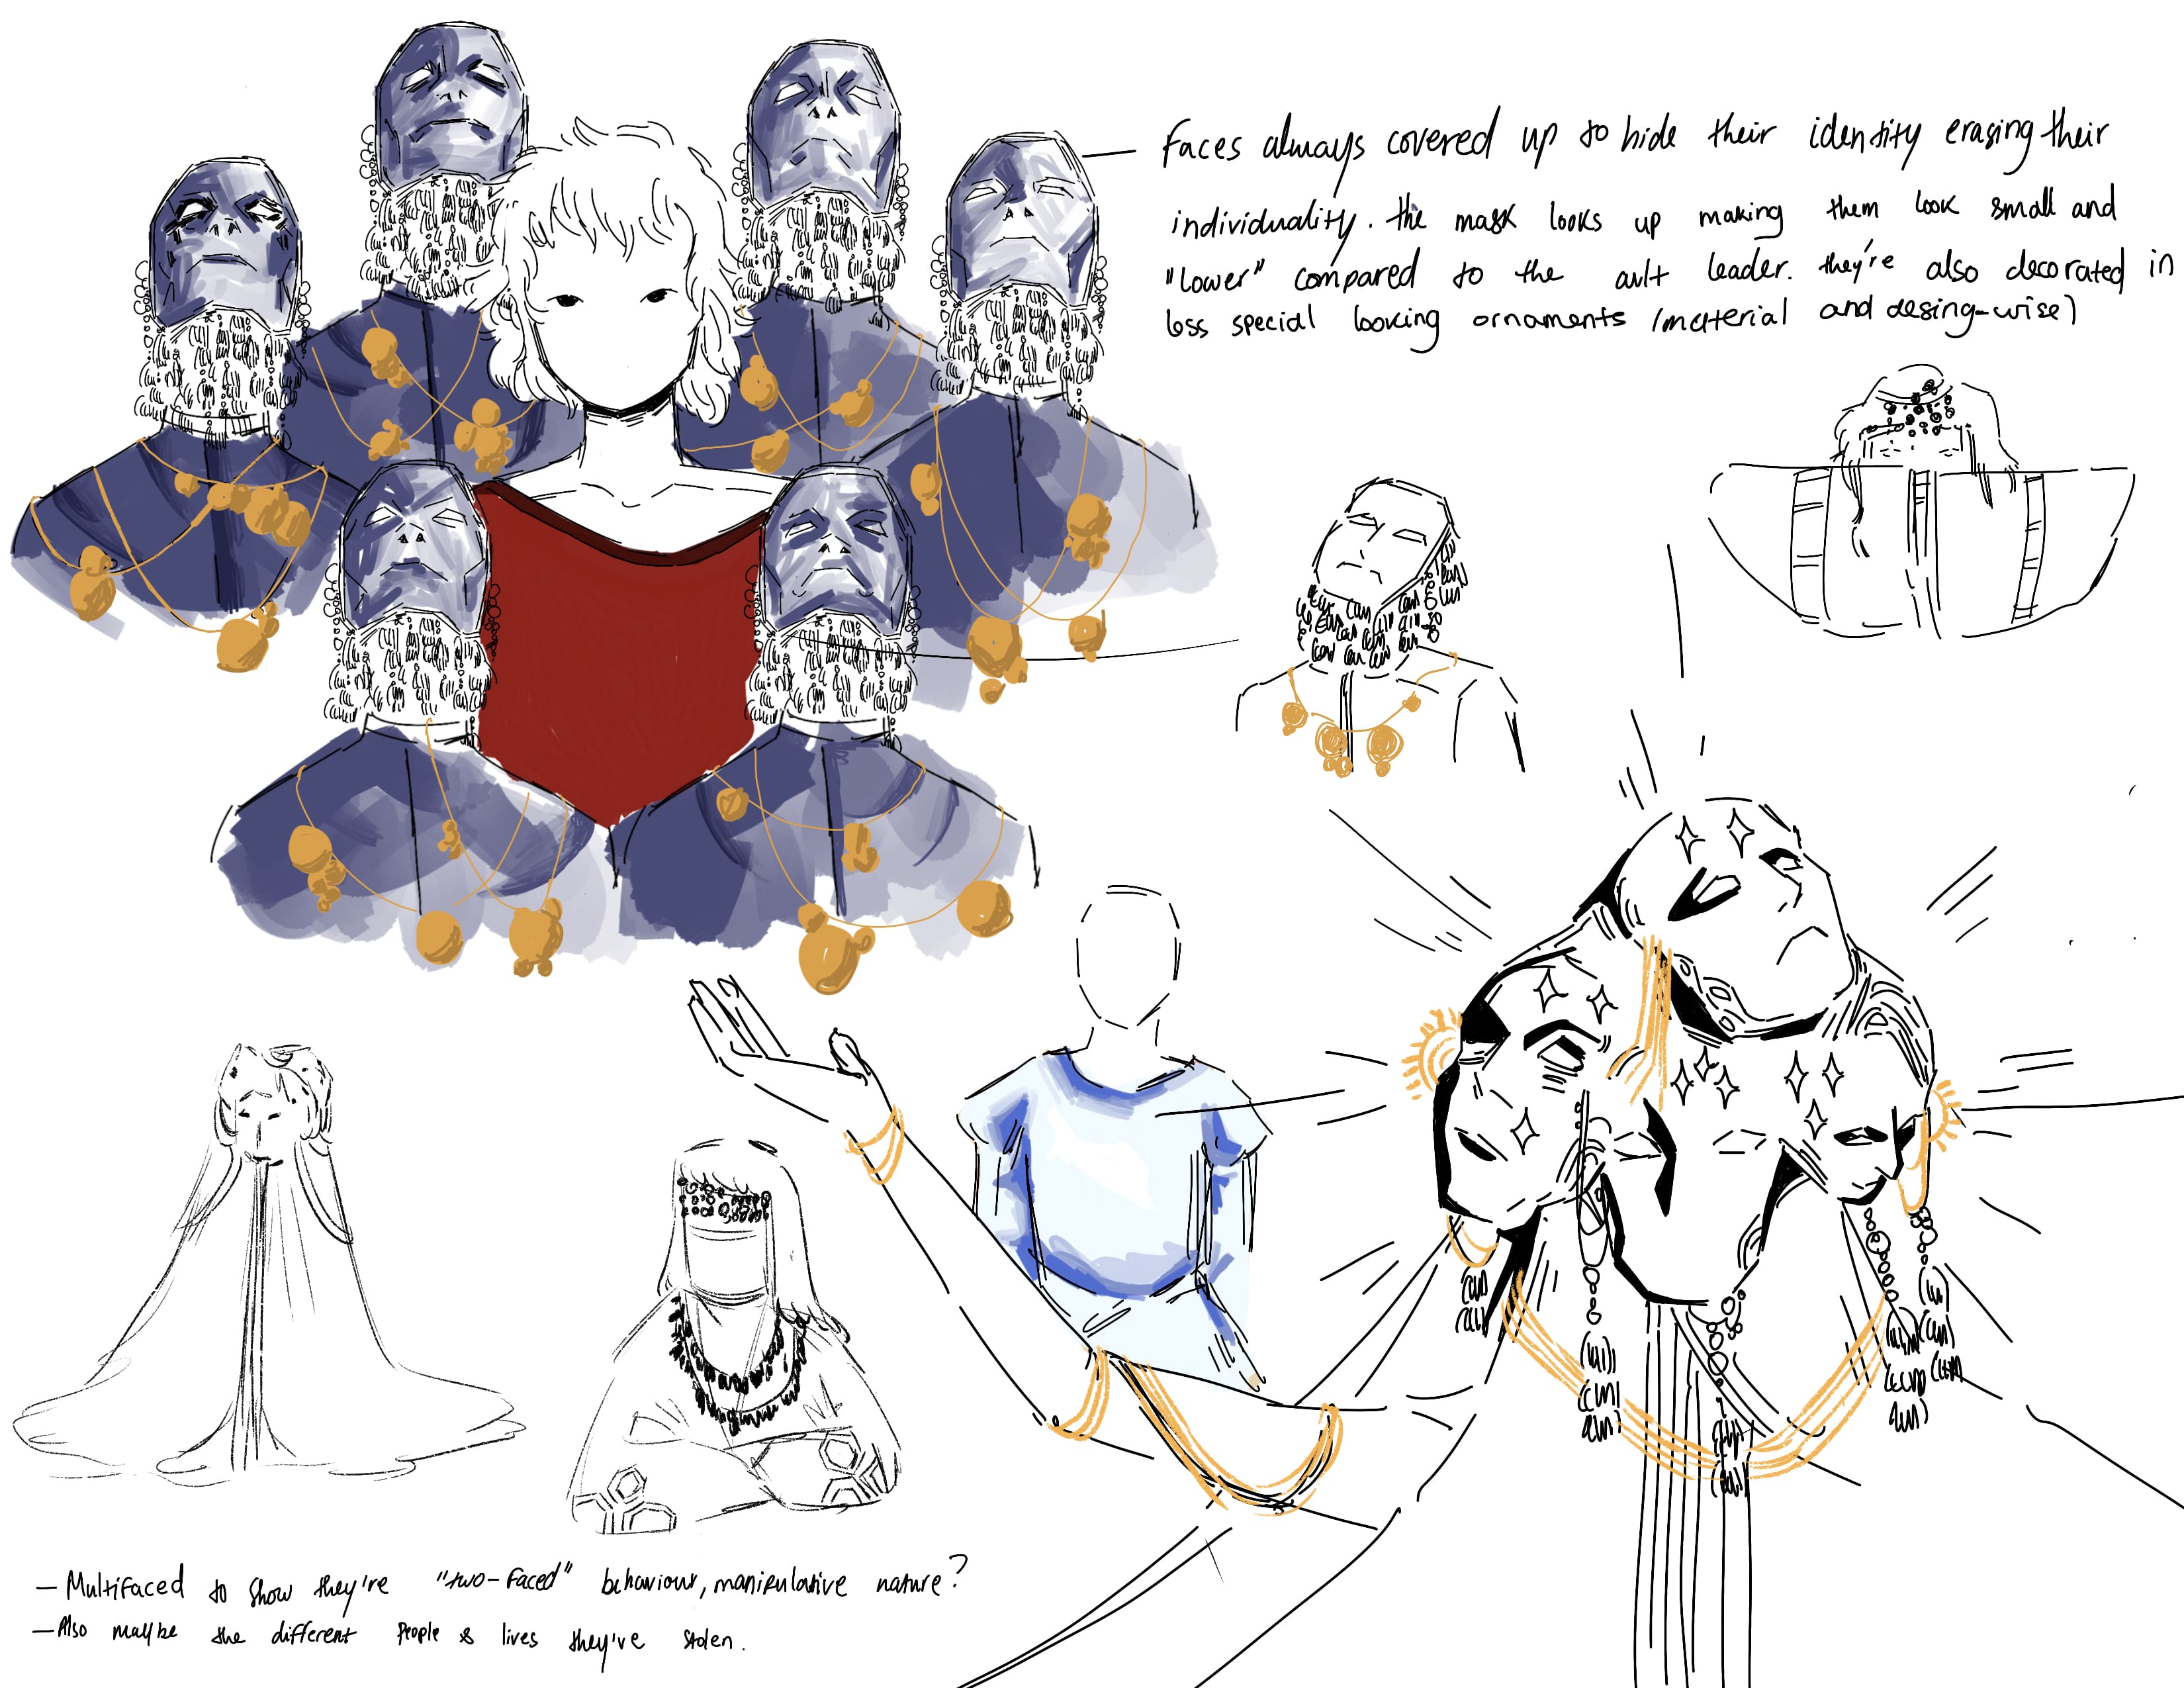 — Faces always covered up to hide their identity erasing their
individuality. the mask looks up making them look small and
"lower" compared to the cult leader. they're also decorated in
less special looking ornaments (material and desing-wise)
— Multifaced to show they're "two-faced" behaviour, manipulative nature?
— Also maybe the different people & lives they've stolen.